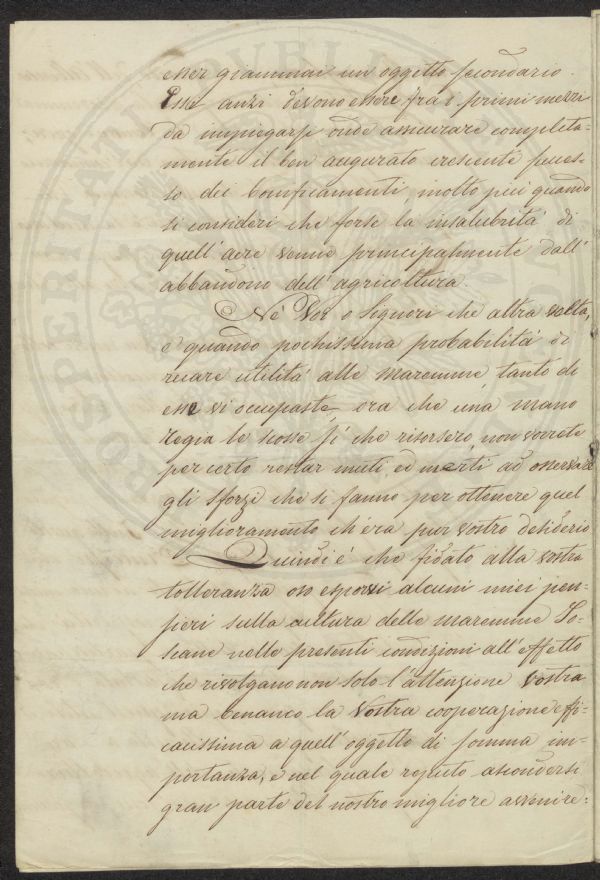 esser giammai un oggetto secondario.
Esse anzi devono essere fra i primi mezzi
da impiegarsi onde assicurare completa-
mente il ben augurato crescente succes-
so dei bonificamenti, molto più quando
si consideri che forse la insalubrità di
quell'aere venne principalmente dall'
abbandono dell'agricoltura.
Nè Voi o Signori che altra volta,
e quando pochissima probabilità di
recare utilità alle maremme, tanto di
esse vi occupaste, ora che una mano
regia le scosse sì che risorsero, non vorrete
per certo restar muti, ed inerti ad osservare
gli sforzi che si fanno per ottenere quel
miglioramento ch'era pur vostro desiderio
Quindi è che fidato alla vostra
tolleranza oso esporvi alcuni miei pen-
sieri sulla cultura delle maremme To-
scane nelle presenti condizioni all'effetto
che rivolgano non solo l'attenzione vostra
ma benanco la vostra cooperazione effi-
cacissima a quell'oggetto di somma im-
portanza, e nel quale reputo ascondersi
gran parte del nostro migliore avvenire: